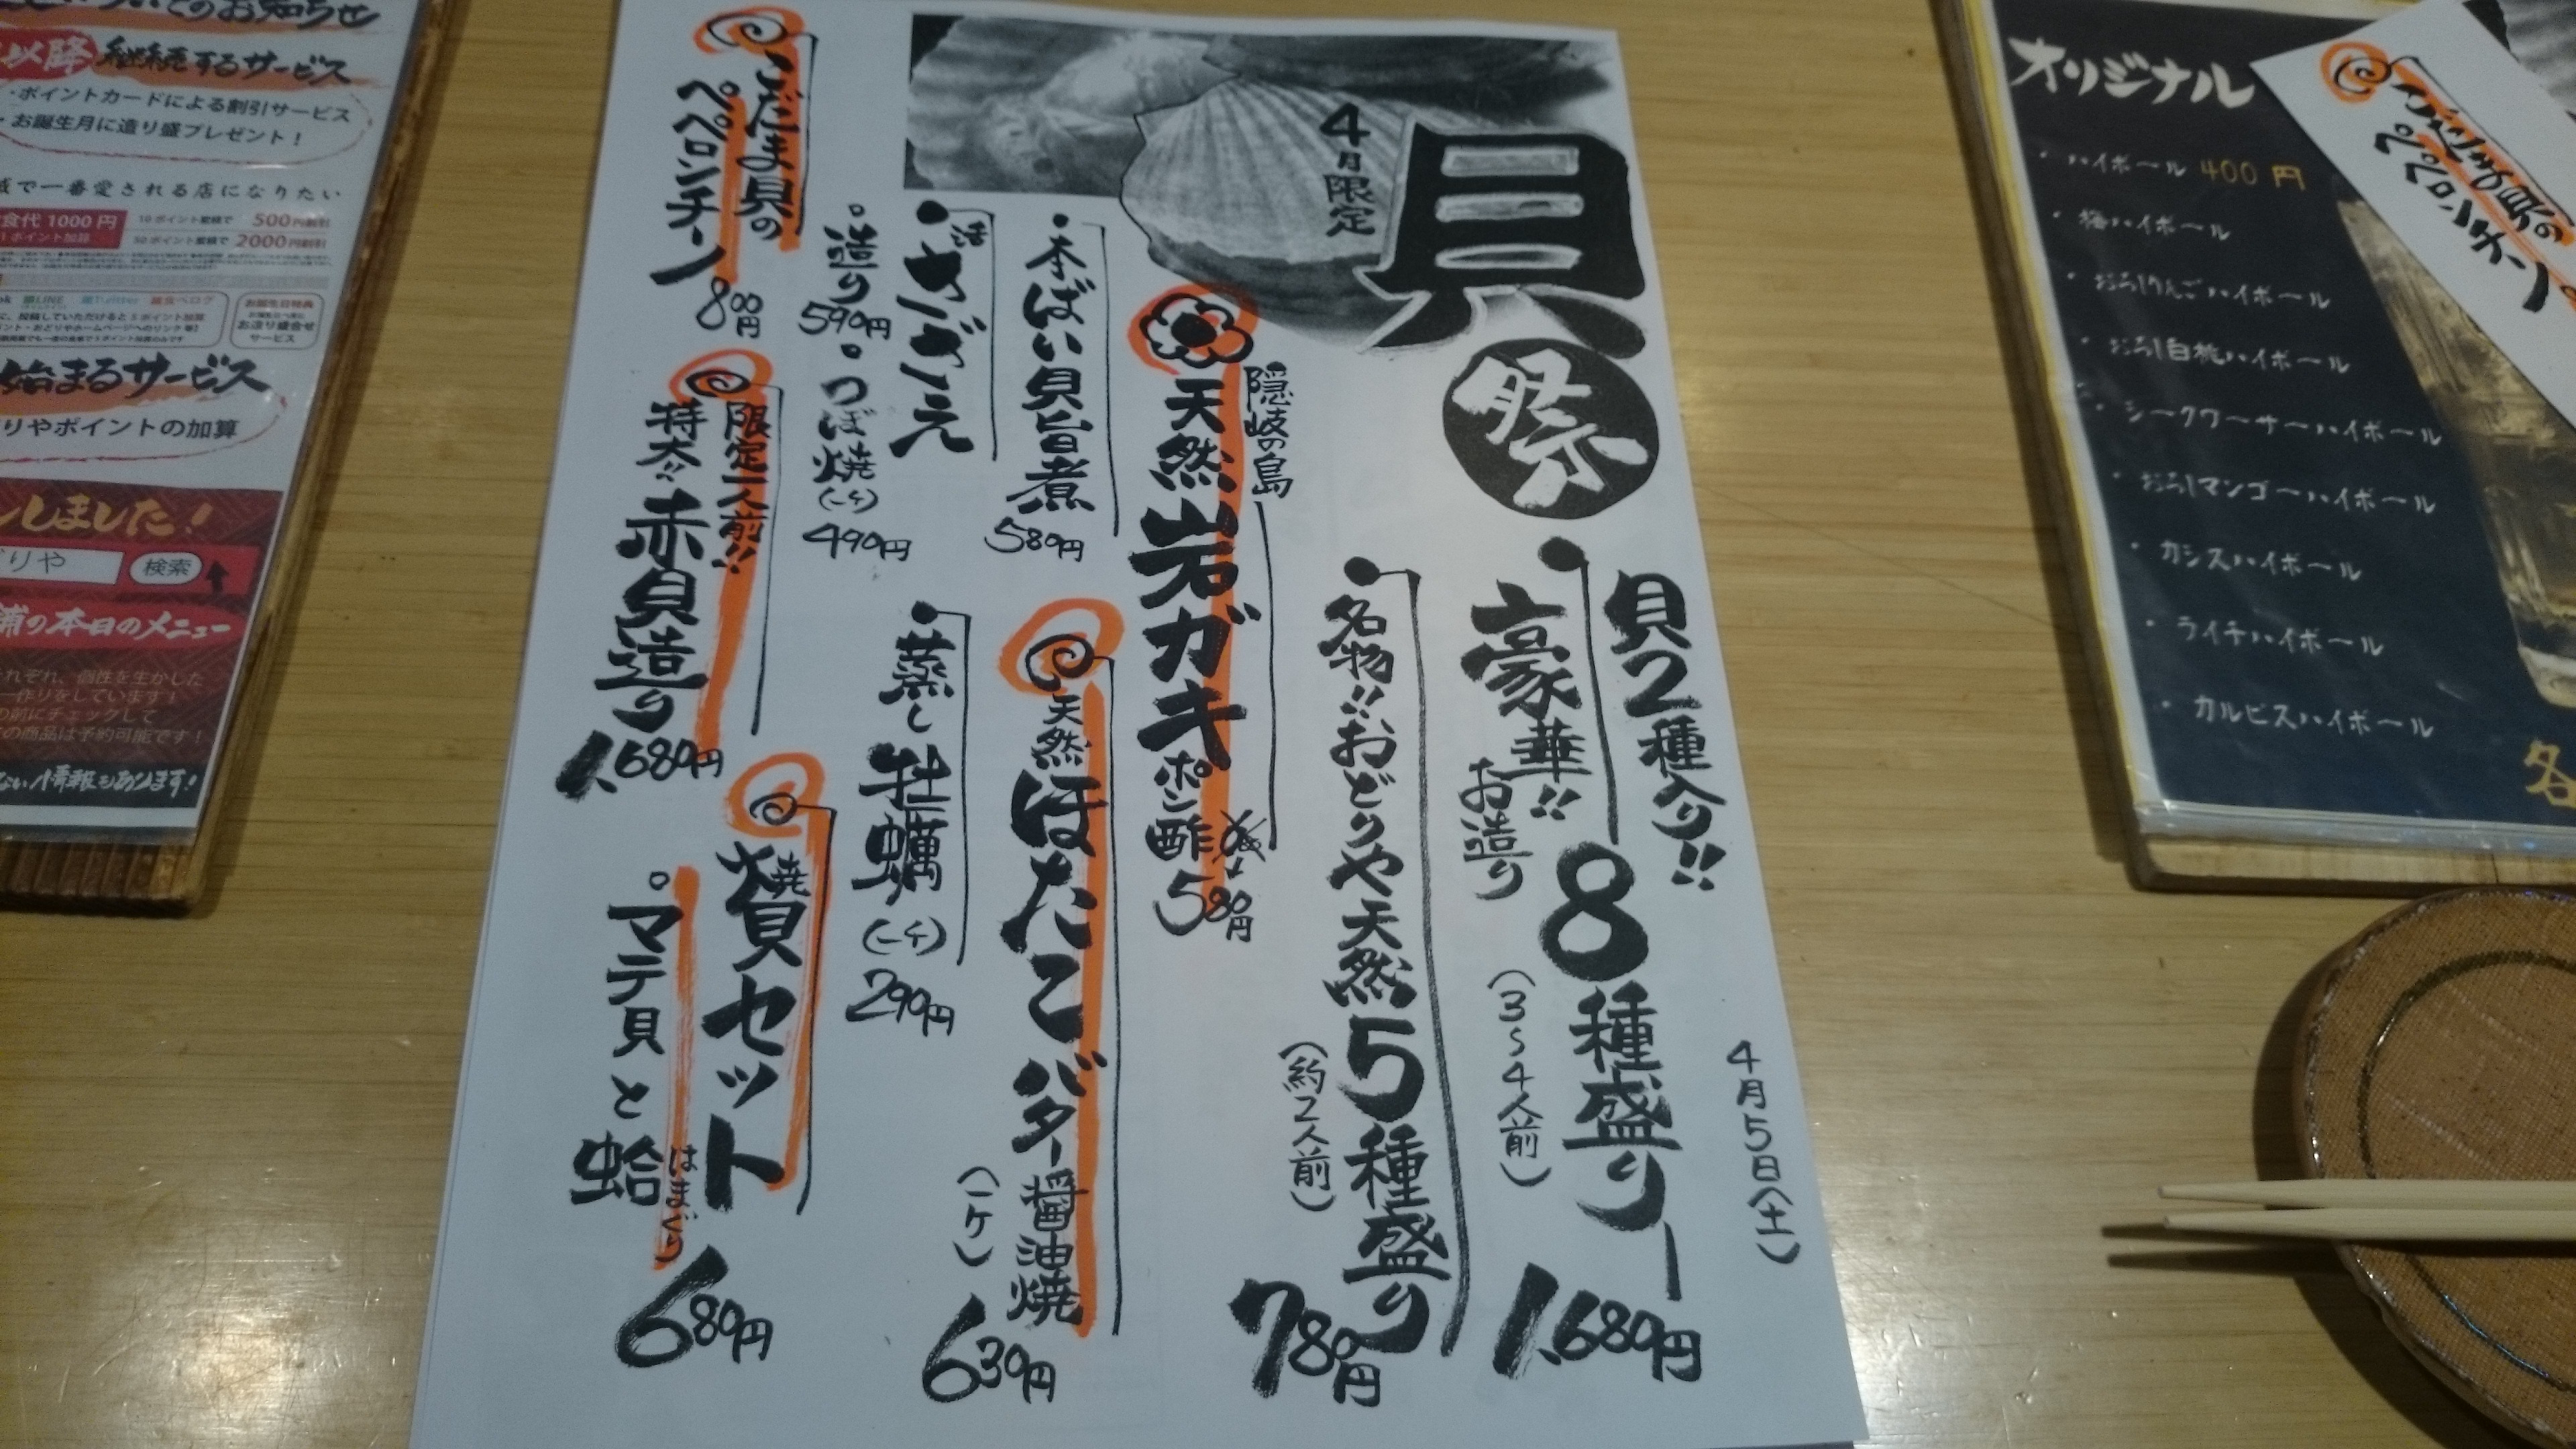 4月5日(土)
貝祭
4月限定
貝2種入り!!
豪華!!
お造り
8種盛り
(3〜4人前)
1.680円
名物!!おどりや天然5種盛り
(約2人前)
780円
隠岐の島
天然岩ガキ
ポン酢
580円
本ばい貝旨煮
580円
天然ほたてバター醤油焼
(一ケ)
630円
活
さざえ
造り
590円
つぼ焼
(一ケ)
490円
蒸し牡蠣(一ケ)
290円
こだま貝の
ペペロンチーノ
800円
限定一人前!!
特大!!赤貝造り
1.680円
焼貝セット
マテ貝と蛤
はまぐり
680円
オリジナル
・ハイボール 400円
・梅ハイボール
・おろしりんごハイボール
・おろし白桃ハイボール
・シークワーサーハイボール
・おろしマンゴーハイボール
・カシスハイボール
・ライチハイボール
・カルピスハイボール
各
こだま貝の
ペペロンチーノ
のお知らせ
以降 継続するサービス
・ポイントカードによる割引サービス
・お誕生月に造り盛プレゼント!
で一番愛される店になりたい
食代1000円
1ポイント加算
10ポイント蓄積で 500円割引
50ポイント蓄積で 2000円割引
LINE Twitter 食べログ
お誕生日特典
お造り盛合せ
サービス
始まるサービス
りやポイントの加算
しました!
りや 検索
の本日のメニュー
れぞれ、個性を生かした
一作りをしています!
の前にチェックして
の商品は予約可能です!
ない情報もあります!